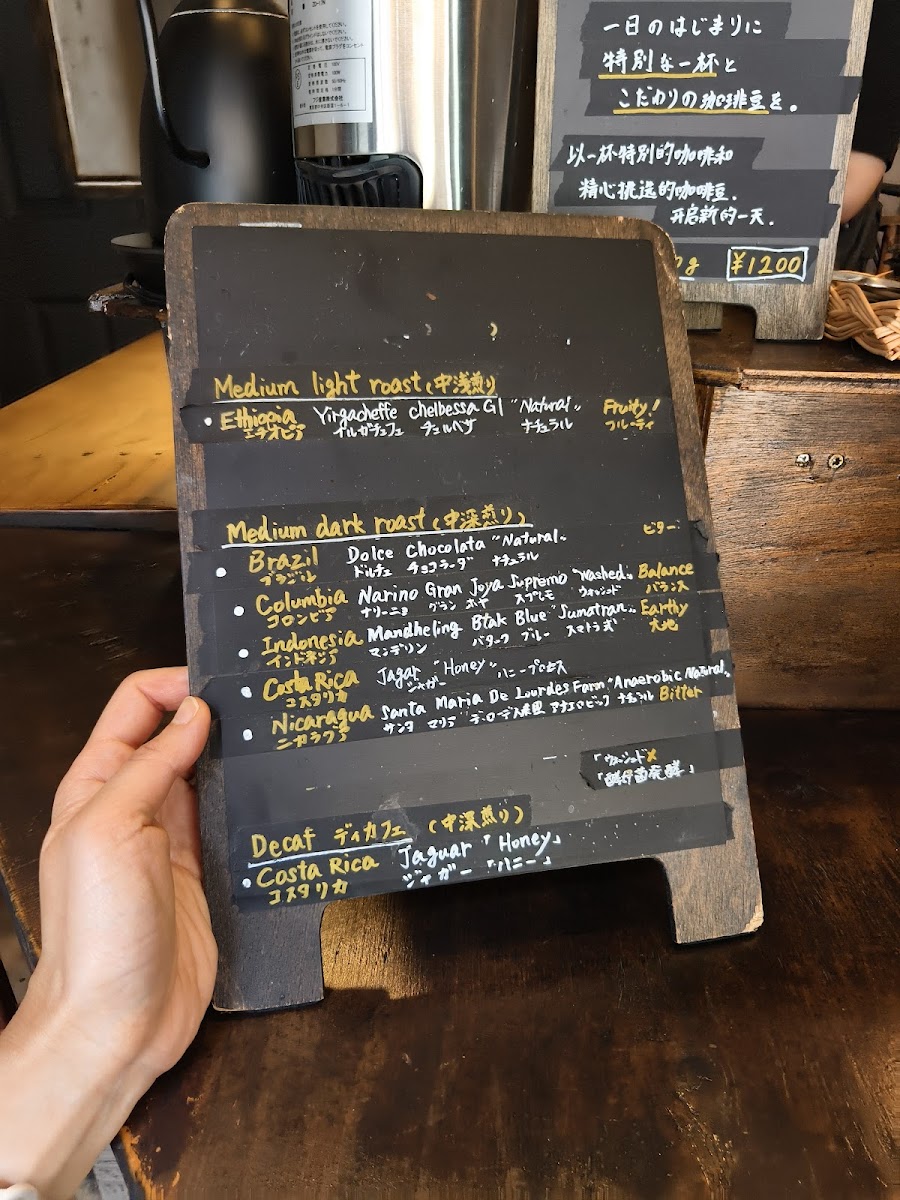 一日のはじまりに
特別な一杯と
こだわりの珈琲豆を。
以一杯特別的咖啡和
精心挑选的咖啡豆.
开启新的一天.
¥1200
Medium light roast (中浅煎り)
• Ethiopia Yirgacheffe chelbessa G1 "Natural" Fruity!
エチオピア イルガチェフェ チェルベサ ナチュラル フルーティ
Medium dark roast (中深煎り)
• Brazil Dolce Chocolata "Natural" ビター
ブラジル ドルチェ チョコラータ ナチュラル
• Columbia Narino Gran Joya Supremo "Washed" Balance
コロンビア ナリーニョ グラン ホヤ スプレモ ウォッシュド バランス
• Indonesia Mandheling Btak Blue "Sumatran" Earthy
インドネシア マンデリン バターク ブルー スマトラ式 大地
• Costa Rica Jagar "Honey" ハニープロセス
コスタリカ ジャガー
• Nicaragua Santa Maria De Lourdes Farm "Anaerobic Natural" Bitter
ニカラグア サンタ マリア アナエロビック ナチュラル
Decaf ディカフェ (中深煎り)
• Costa Rica Jaguar「Honey」
コスタリカ ジャガー「ハニー」